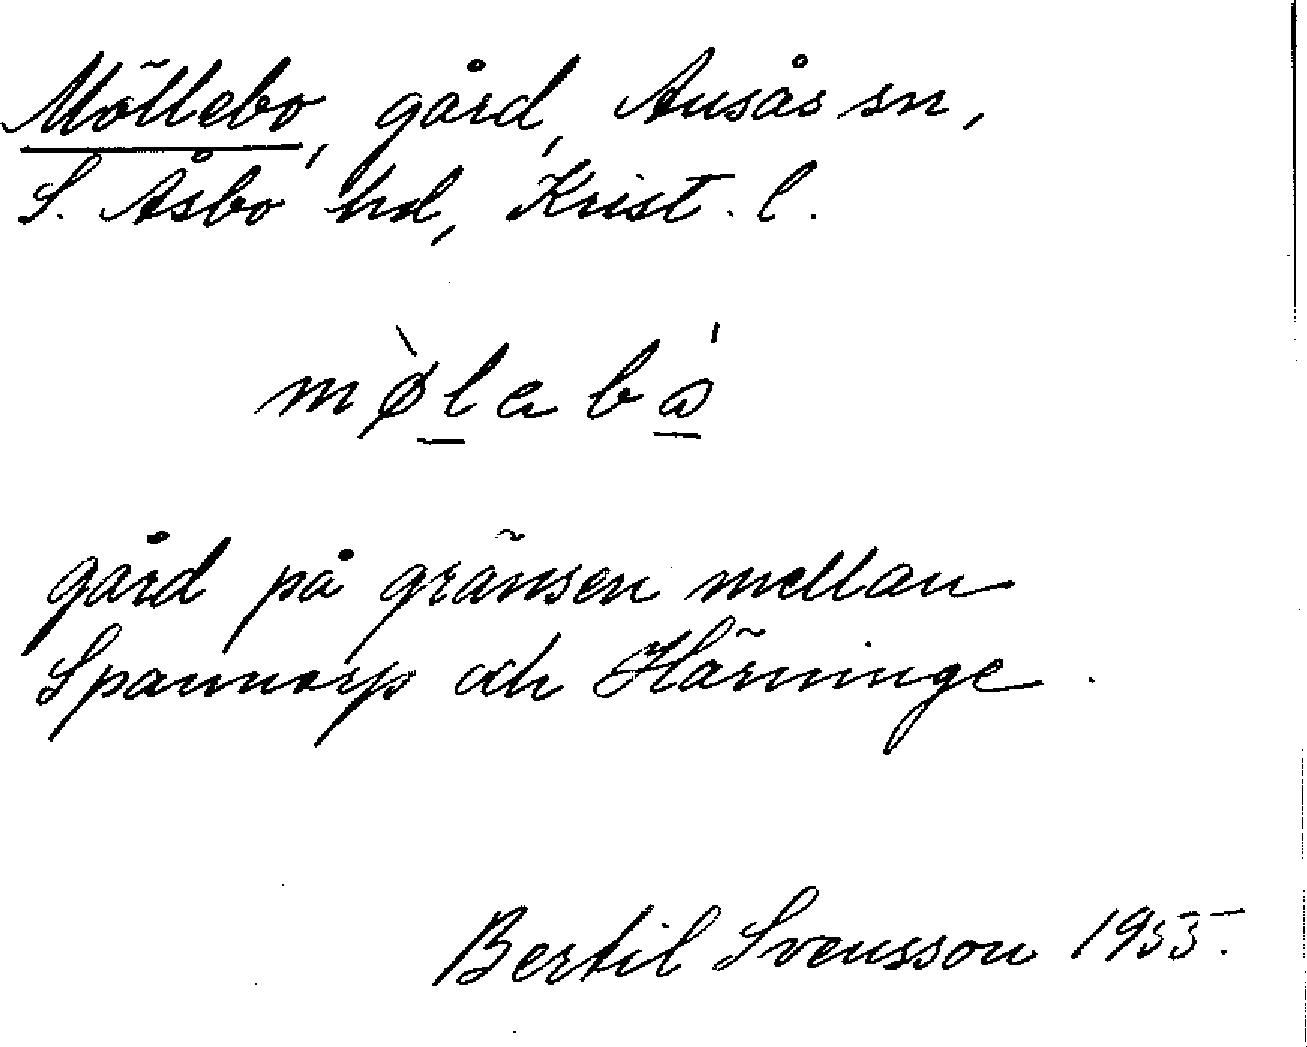 Möllebo, gård, Ausås sn,
S. Åsbo hd, Krist. l.
mø̀labǻ
gård på gränsen mellan
Spannarp och Härninge.
Bertil Svensson 1955.